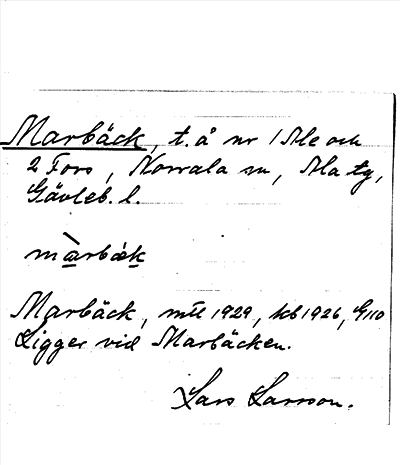 Marbäck, t. å nr 1 Ale och
2 Fors, Norrala sn, Ala tg,
Gävleb. l.
màrbæk
Marbäck, mtl 1929, kb 1926, G110
Ligger vid Marbäcken.
Lars Larsson.